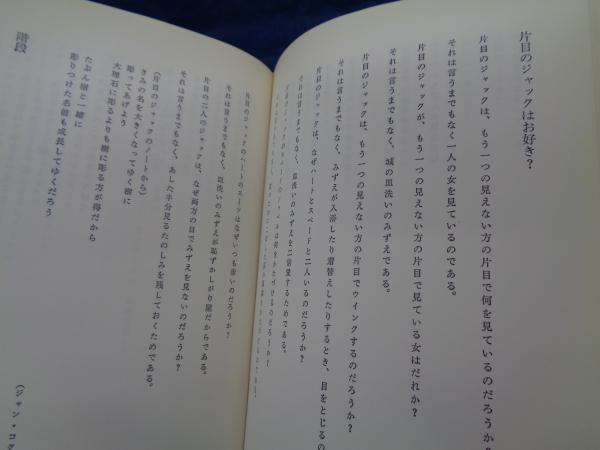 片目のジャックはお好き?
片目のジャックは、もう一つの見えない方の片目で何を見ているのだろうか?
それは言うまでもなく一人の女を見ているのである。
片目のジャックが、もう一つの見えない方の片目で見ている女はだれか?
それは言うまでもなく、城の皿洗いのみずえである。
片目のジャックは、もう一つの見えない方の片目でウインクするのだろうか?
それは言うまでもなく、みずえが入浴したり着替えしたりするとき、目をとじるの
片目のジャックは、なぜハートとスペードと二人いるのだろうか?
それは言うまでもなく、皿洗いのみずえを二倍愛するためである。
片目のジャックのハートのスーツはなぜいつも赤いのだろうか?
それは言うまでもなく、皿洗いのみずえが恥ずかしがり屋だからである。
片目の二人のジャックは、なぜ両方の目でみずえを見ないのだろうか?
それは言うまでもなく、あした半分見るたのしみを残しておくためである。
(片目のジャックのノートから)
きみの名を大きくなってゆく樹に
彫ってあげよう
大理石に彫るよりも樹に彫る方が得だから
たぶん樹と一緒に
彫りつけた名前も成長してゆくだろう
(ジャン・コク
階段